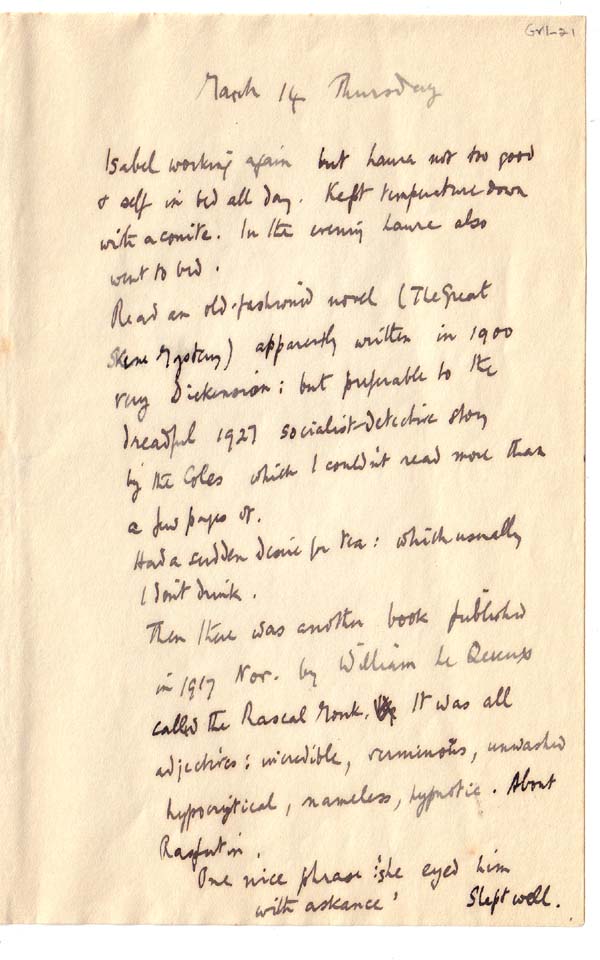 GVI-21
March 14 Thursday
Isabel working again but Laura not too good
& self in bed all day. Kept temperature down
with aconite. In the evening Laura also
went to bed.
Read an old-fashioned novel (The Great
Skene Mystery) apparently written in 1900
very Dickension: but preferable to the
dreadful 1927 socialist-detective story
by the Coles which I couldn't read more than
a few pages of.
Had a sudden desire for tea: which usually
I don't drink.
Then there was another book published
in 1917 Nov. by William Le Queux
called the Rascal Monk. It was all
adjectives: incredible, verminous, unwashed
hypocrytical, nameless, hypnotic. About
Rasputin.
One nice phrase 'she eyed him
with askance' Slept well.